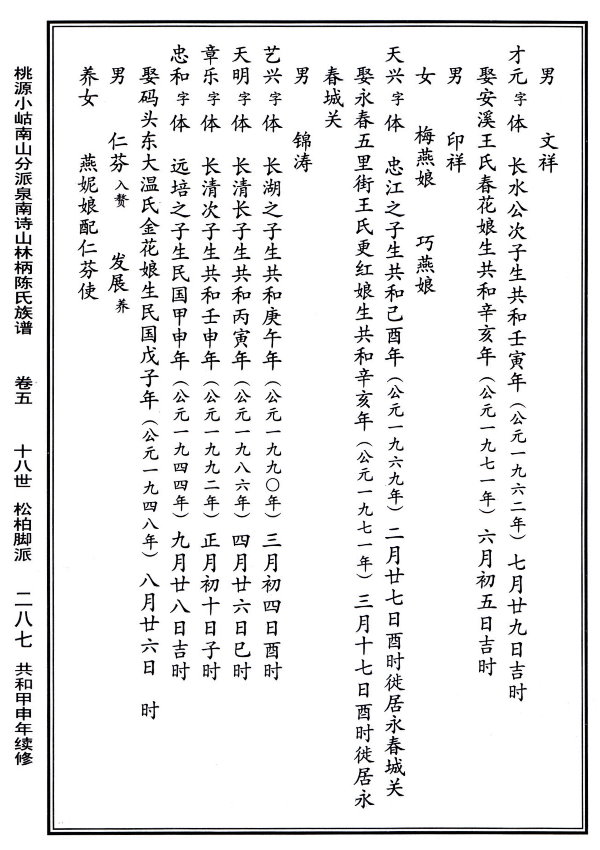 男　文祥
才元字体　长水公次子生共和壬寅年（公元一九六二年）七月廿九日吉时
娶安溪王氏春花娘生共和辛亥年（公元一九七一年）六月初五日吉时
男　印祥
女　梅燕娘　巧燕娘
天兴字体　忠江之子生共和己酉年（公元一九六九年）二月廿七日酉时徙居永春城关
娶永春五里街王氏更红娘生共和辛亥年（公元一九七一年）三月十七日酉时徙居永
春城关
男　锦涛
艺兴字体　长湖之子生共和庚午年（公元一九九〇年）三月初四日酉时
天明字体　长清长子生共和丙寅年（公元一九八六年）四月廿六日巳时
章乐字体　长清次子生共和壬申年（公元一九九二年）正月初十日子时
忠和字体　远培之子生民国甲申年（公元一九四四年）九月廿八日吉时
娶码头东大温氏金花娘生民国戊子年（公元一九四八年）八月廿六日　时
男　仁芬入赘　发展养
养女　燕妮娘配仁芬使
桃源小岵南山分派泉南诗山林柄陈氏族谱　卷五　十八世　松柏脚派　二八七　共和甲申年续修